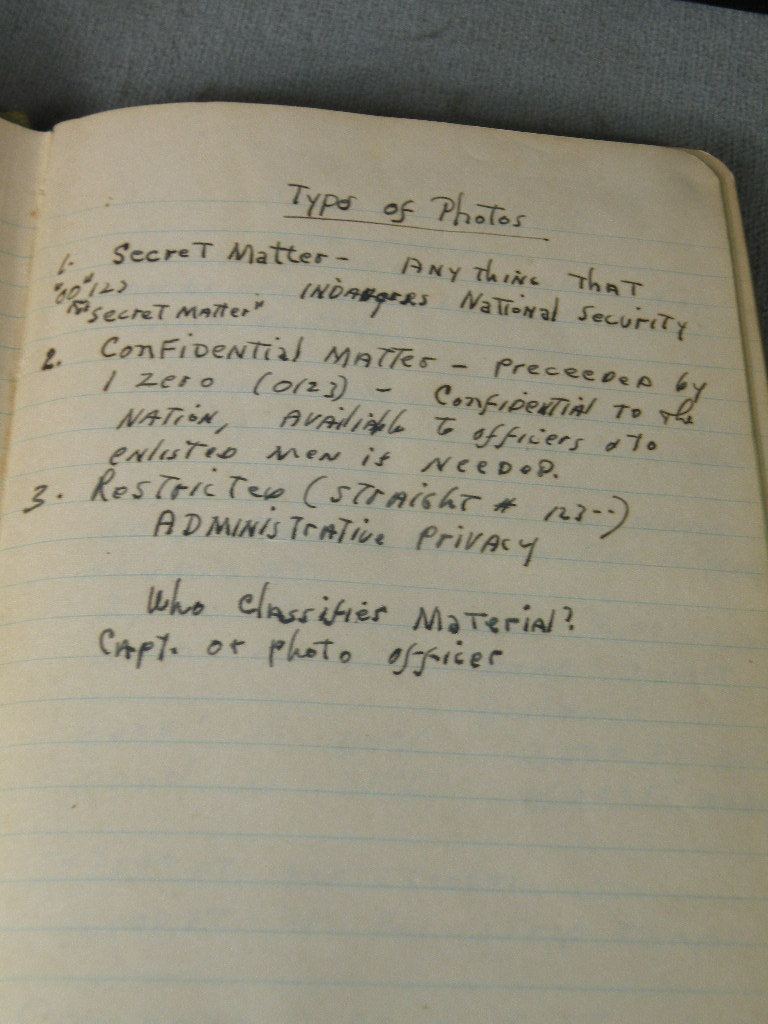 Types of Photos
1. Secret Matter - Anything that
"00"123 indangers National Security
"Secret Matter"
2. Confidential Matter - preceeded by
1 zero (0123) - Confidential to the
nation, available to officers
enlisted men if needed.
3. Restricted (straight # 123--)
Administrative privacy
Who classifies Material?
Capt. or photo officer